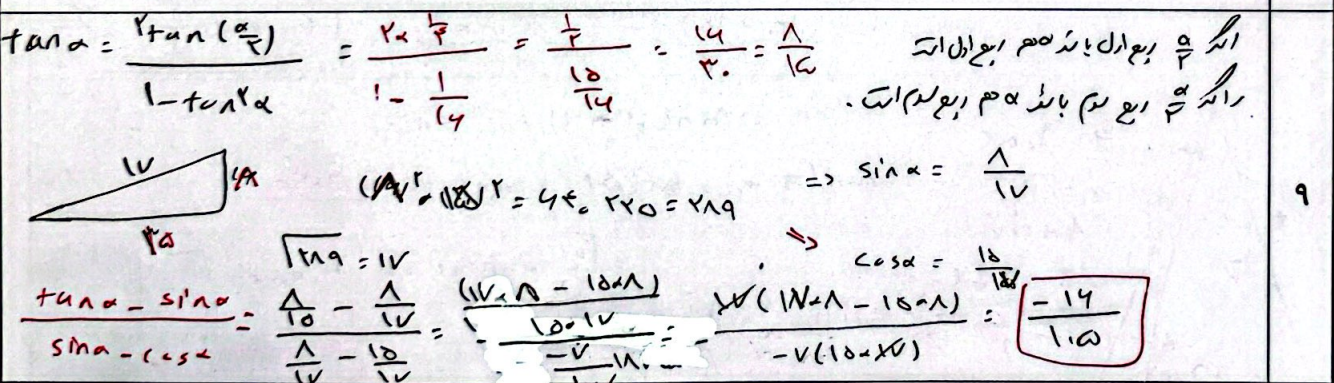 tan α = ۲tan(α/۲) / ۱-tan²α = ۲× ۱/۴ / ۱ - ۱/۱۶ = ۱/۲ / ۱۵/۱۶ = ۱۶/۳۰ = ۸/۱۵
اگر α/۲ ربع اول باشد α هم ربع اول است
و اگر α/۲ ربع سوم باشد α هم ربع سوم است.
۱۷
۸
۱۵
(۸)² + (۱۵)² = ۶۴ + ۲۲۵ = ۲۸۹
=> sin α = ۸/۱۷
۹
√۲۸۹ = ۱۷
=> cos α = ۱۵
tan α - sin α / sin α - cos α = ۸/۱۵ - ۸/۱۷ / ۸/۱۷ - ۱۵/۱۷ = (۱۷×۸ - ۱۵×۸) / ۱۵×۱۷ / -۷/۱۷ = ۱۷(۱۷×۸ - ۱۵×۸) / -۷(۱۵×۱۷) = -۱۶/۱۰۵